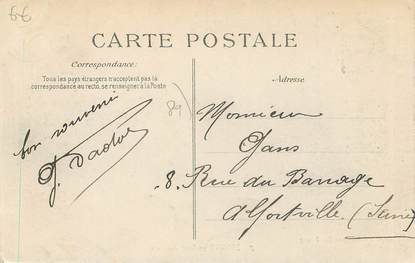 66
CARTE POSTALE
Correspondance:
Tous les pays étrangers n'acceptent pas la
correspondance au recto, se renseigner à la Poste
Adresse
89
bon souvenir
Monsieur
Gans
8. Rue du Barrage
Alfortville. (Seine)